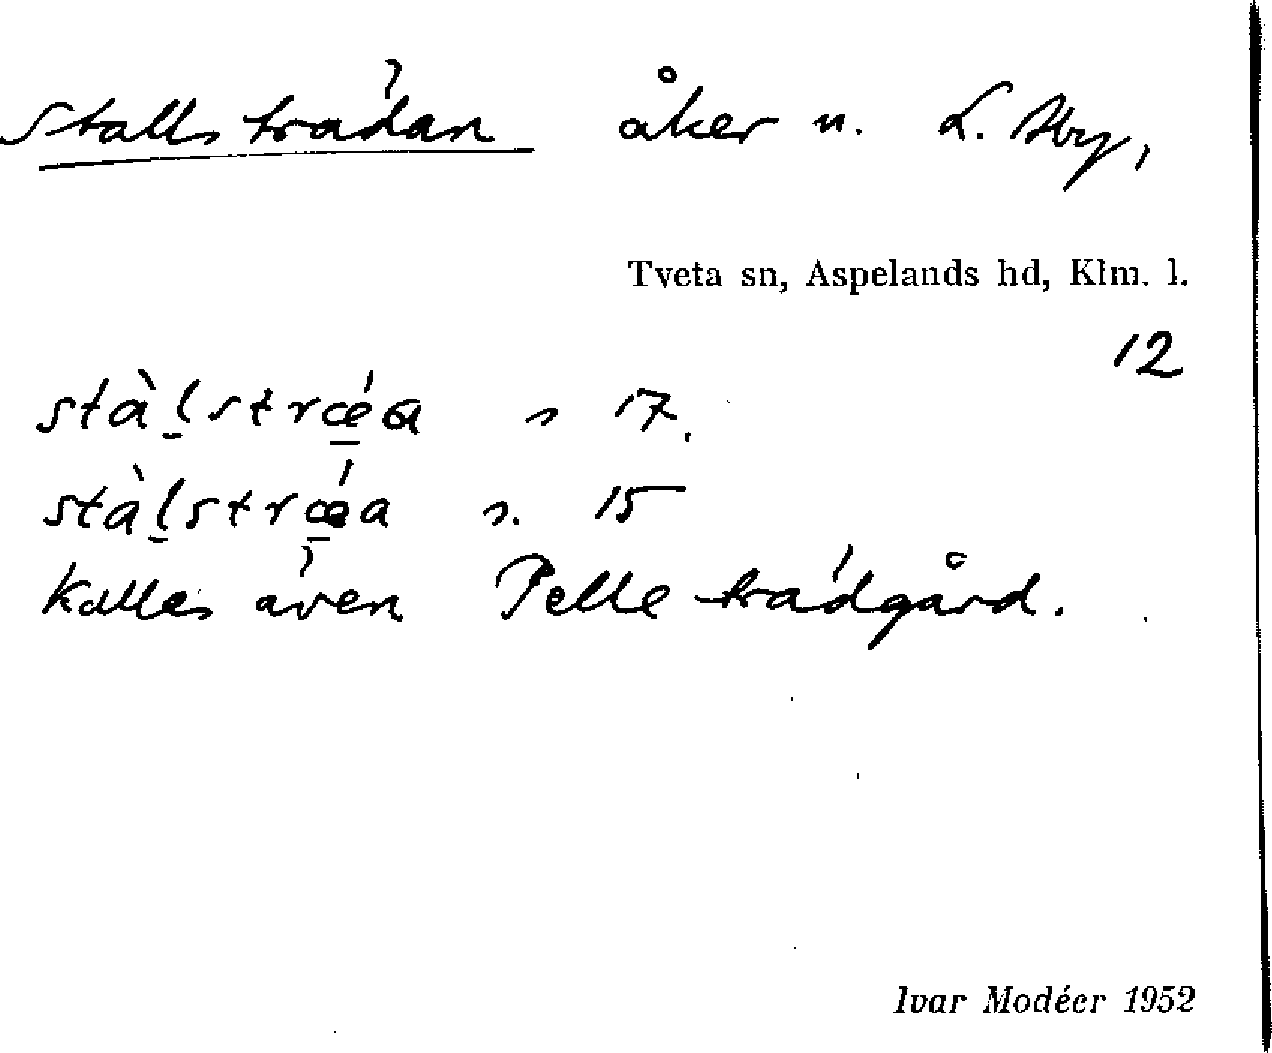 Stallsträdan åker u. L. Åby,
Tveta sn, Aspelands hd, Klm. l.
12
stàl̠strǽ̠a s 17.
stàl̠strǽ̠a s. 15
Kallas även Pelle trädgård.
Ivar Modéer 1952